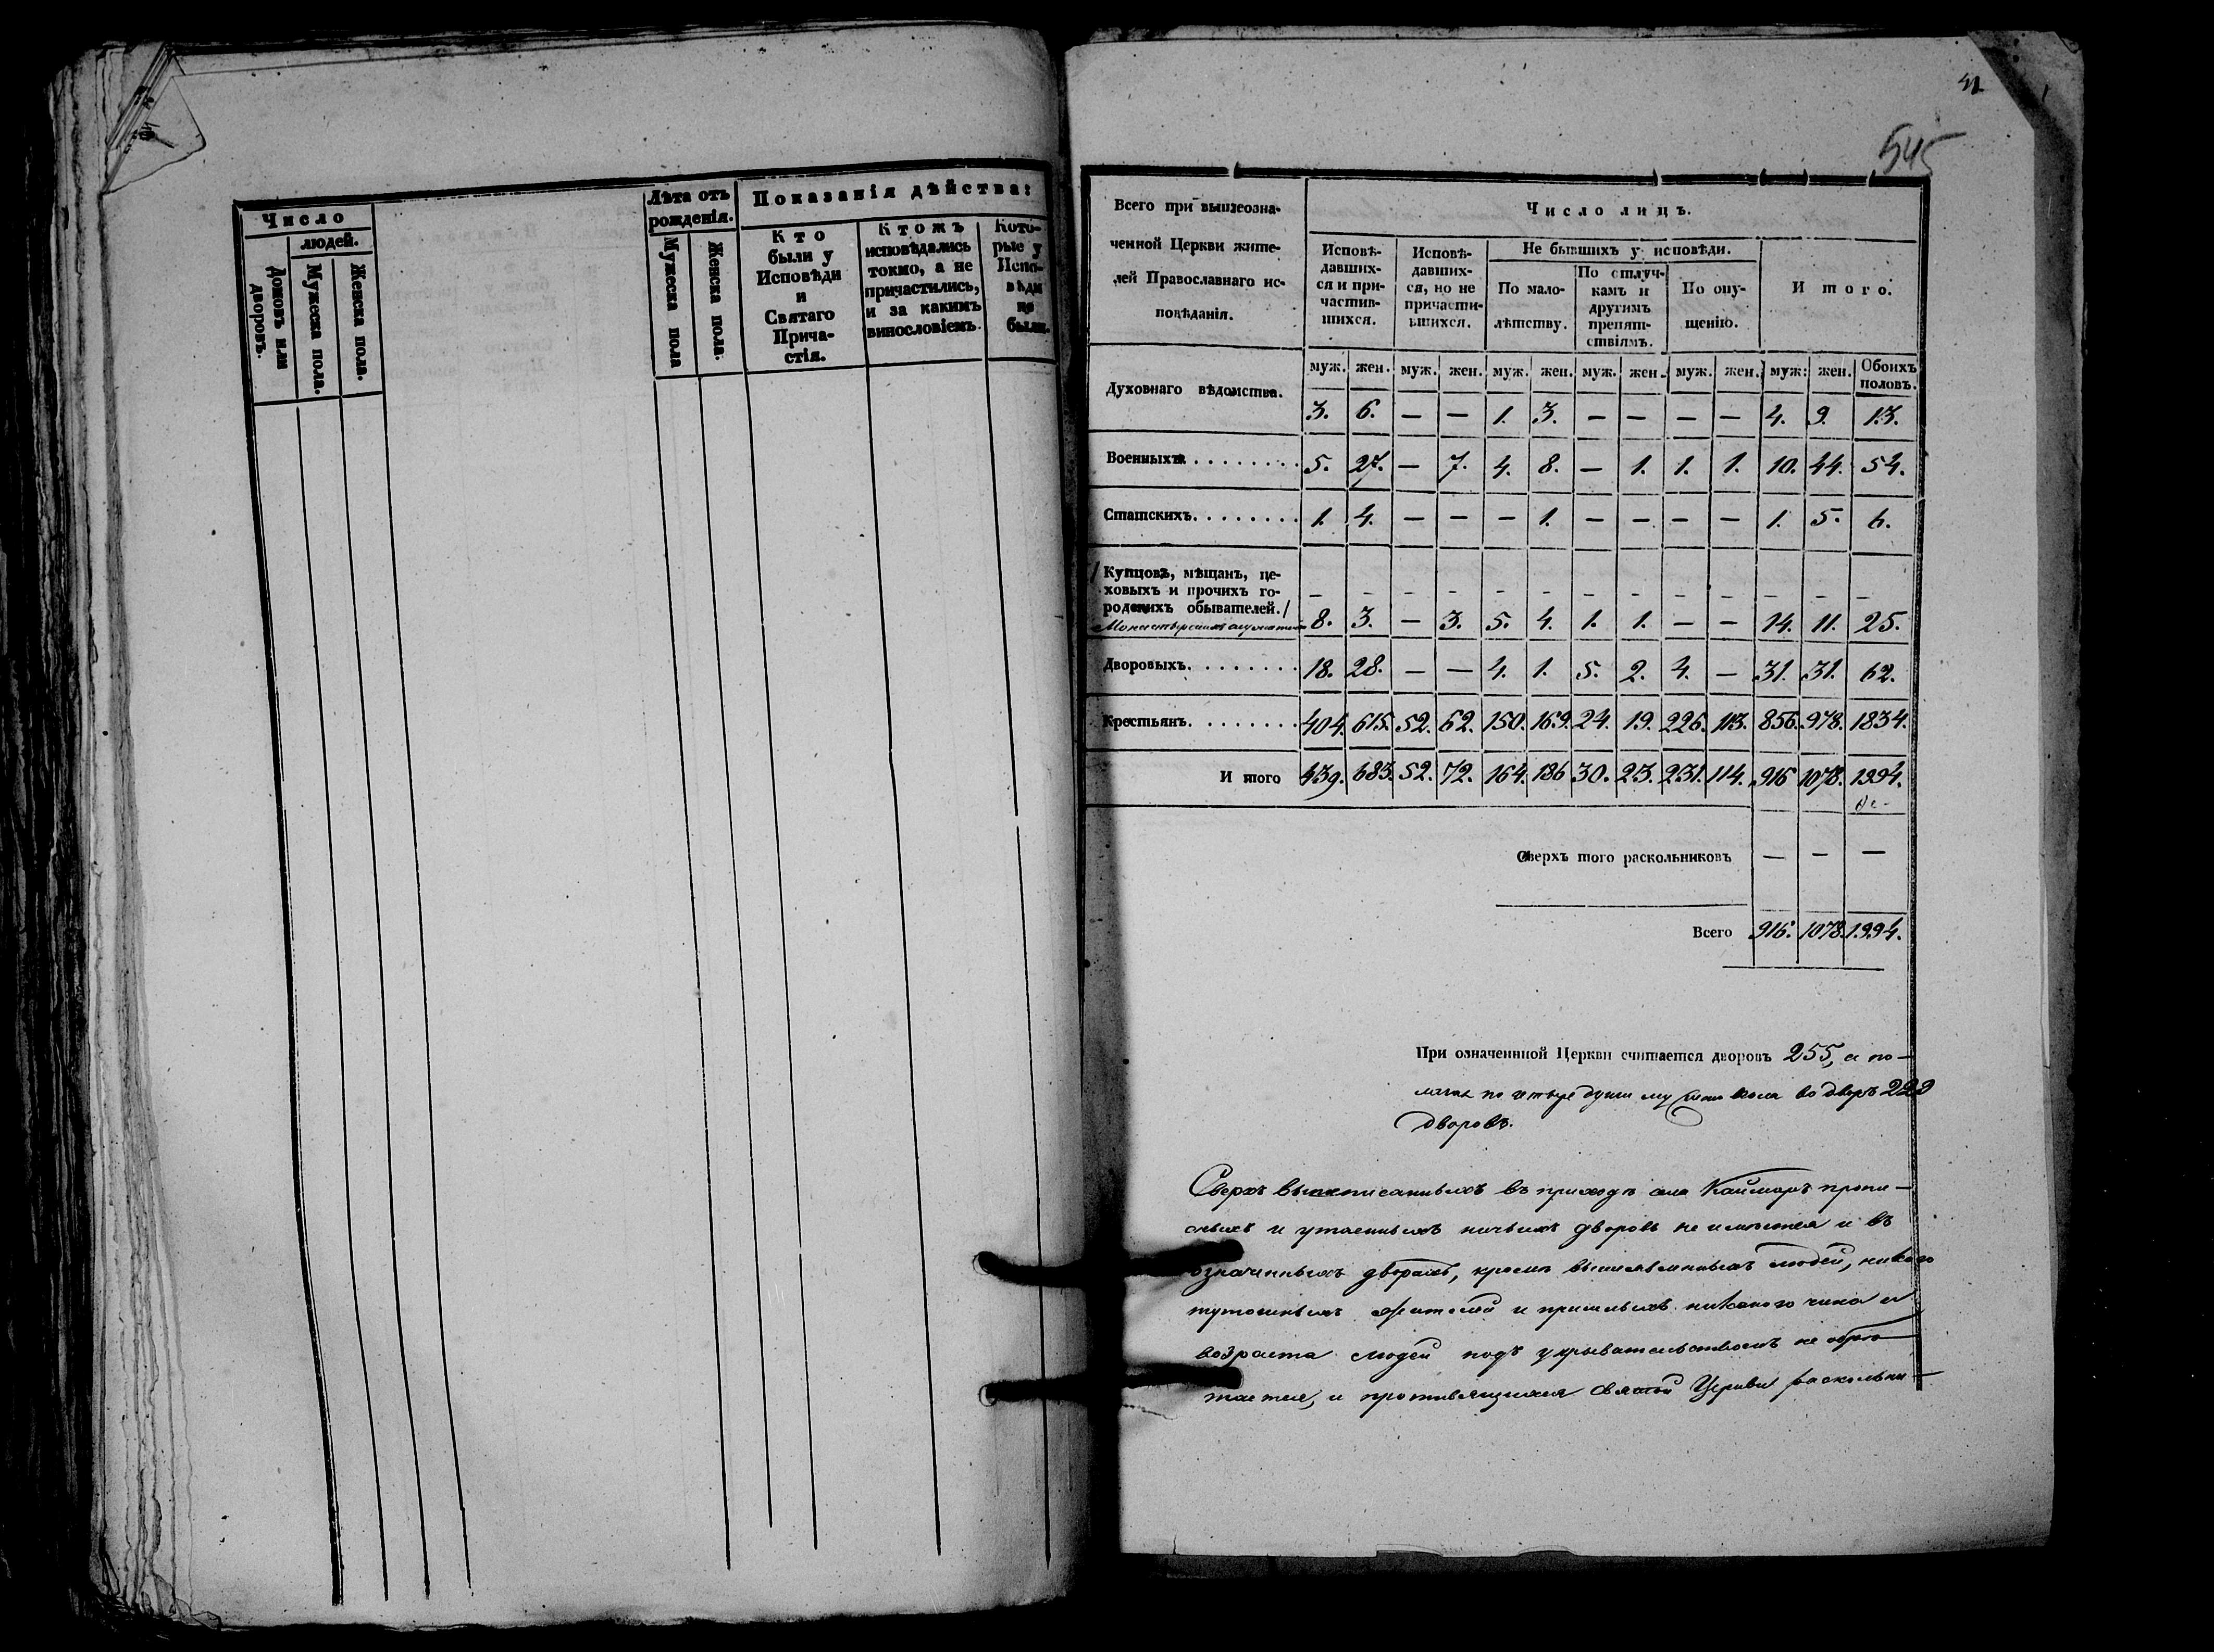 Число
людей.
Домовъ или дворовъ.
Мужеска пола.
Женска пола.
Лѣта отъ
рожденія.
Мужеска пола
Женска пола.
Показанія дѣйства:
Кто
были у
Исповѣди
и
Святаго
Прича-
стія.
Ктожъ
исповѣдались
токмо, а не
причастились,
и за какимъ
винословіемъ.
Кото-
рые у
Испо-
вѣди
не
были.
41
545
Всего при вышеозна-
ченной Церкви жите-
лей Православнаго ис-
повѣданія.
Число лицъ.
Исповѣ-
давших-
ся и при-
частив-
шихся.
Исповѣ-
давших-
ся, но не
причасти-
вшихся.
Не бывшихъ у исповѣди.
По мало-
лѣтству.
По отлуч-
камъ и
другимъ
препят-
ствіямъ.
По опу-
щенію.
Итого.
муж. жен. муж. жен. муж. жен. муж. жен. муж. жен. муж. жен. Обоихъ половъ.
Духовнаго вѣдомства. 3. 6. — — 1. 3. — — — — 4. 9. 13.
Военныхъ 5. 27. — 7. 4. 8. — 1. 1. 1. 10. 44. 54.
Статскихъ 1. 4. — — — 1. — — — — 1. 5. 6.
Купцовъ, мѣщанъ, це-
ховыхъ и прочихъ го-
родскихъ обывателей. — — — — — — — — — — — — —
Монастырскихъ служителей 8. 3. — 3. 5. 4. 1. 1. — — 14. 11. 25.
Дворовыхъ 18. 28. — — 4. 1. 5. 2. 4. — 31. 31. 62.
Крестьянъ 404. 615. 52. 62. 150. 169. 24. 19. 226. 113. 856. 978. 1834.
Итого 439. 683. 52. 72. 164. 186 30. 23. 231. 114. 916 1078. 1994.
Сверхъ того раскольниковъ — — —
Всего 916. 1078. 1994.
При означенной Церкви считается дворовъ 255, а по-
лагая по четыре души муж. пола во дворъ 229
дворовъ.
Сверхъ вышеписанныхъ въ приходѣ села Каймаръ пропи-
сныхъ и утаенныхъ ничьихъ дворовъ не имѣется и въ
означенныхъ дворахъ, кромѣ вышеявленныхъ людей, никого
тутошныхъ жителей и пришлыхъ никакого чина и
возраста людей подъ укрывательствомъ не обрѣ-
тается, и противящихся Святой Церкви раскольни-